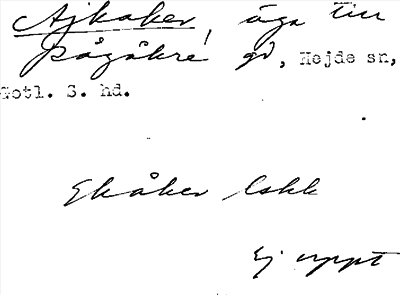 Ajkaker, äga till
Pågåkre gd, Hejde sn,
Gotl. S. hd.
Ekåker lskk
Ej uppt